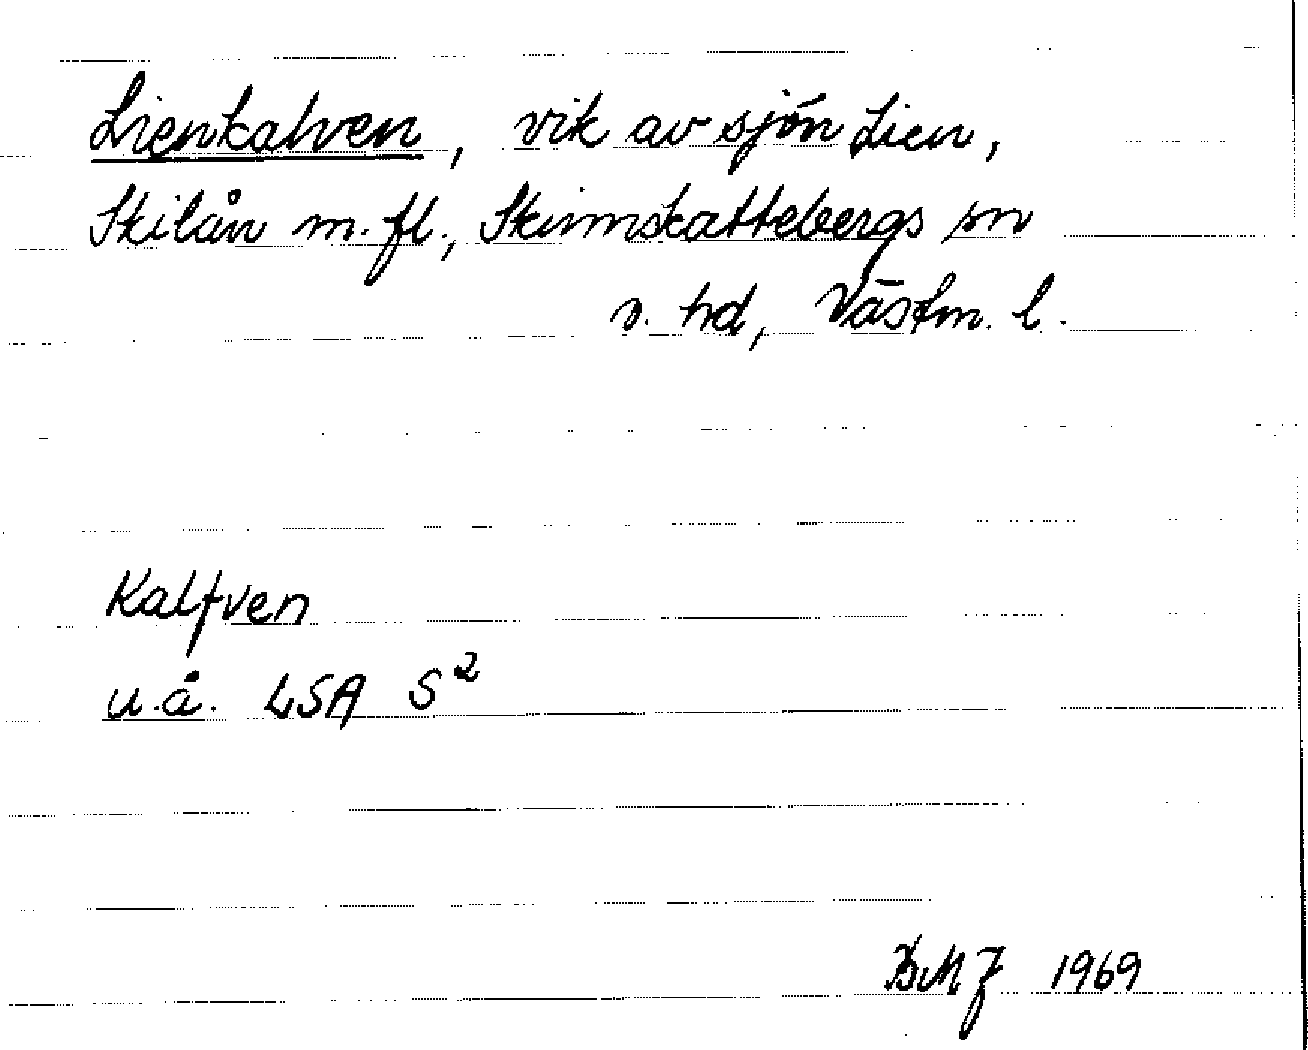 Lienkalven, vik av sjön Lien,
Skilån m.fl., Skinnskattebergs sn
o. hd, Västm. l.
Kalfven
u.å. LSA S²
BMJ 1969